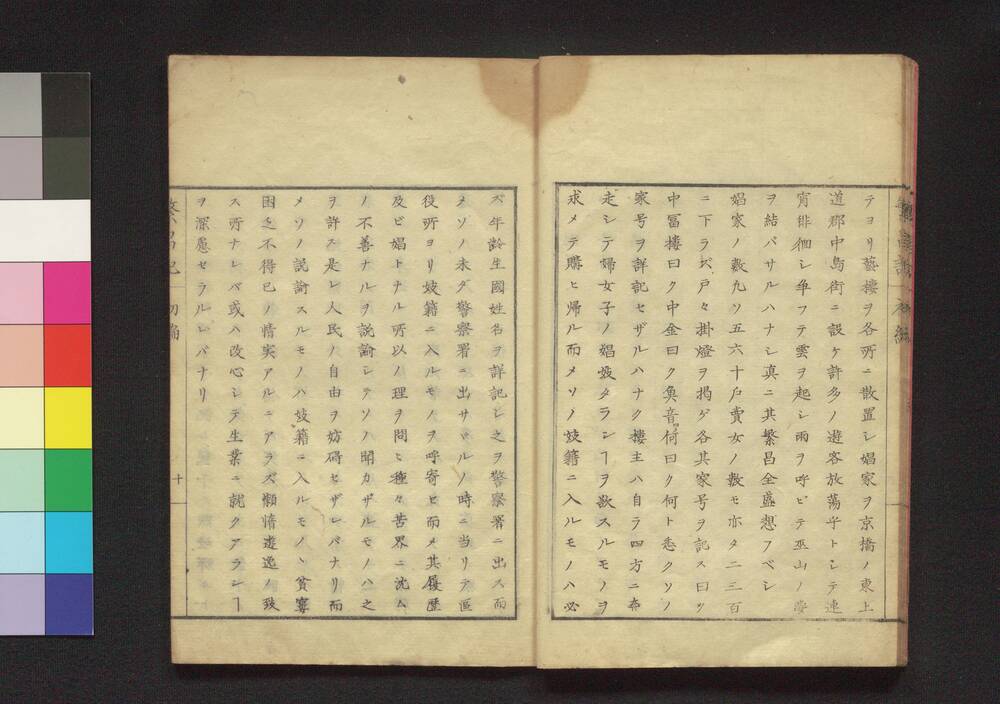 テヨリ藝樓ヲ各所ニ散置シ娼家ヲ京橋ノ東上
道郡中島街ニ設ケ許多ノ遊客放蕩乎トシテ連
宵徘徊シ争フテ雲ヲ起シ雨ヲ呼ヒテ巫山ノ夢
ヲ結バサルハナシ真ニ其繁昌全盛想フベシ
娼家ノ数九ソ五六十戸賣女ノ数モ亦タ二三百
ニ下ラズ戸々掛燈ヲ掲ゲ各其家号ヲ記ス曰ク
中冨樓曰ク中金曰ク奐音何曰ク何ト悉クソノ
家号ヲ詳記セザルハナク樓主ハ自ラ四方ニ奔
走シテ婦女子ノ娼妓タランヿヲ欲スルモノヲ
求メテ購ヒ帰ル而メソノ妓籍ニ入ルモノハ必
ズ年齢生國姓名ヲ詳記シ之ヲ警察署ニ出ス而
メソノ未ダ警察署ニ出サヾルノ時ニ当リテ區
役所ヨリ妓籍ニ入ルモノヲ呼寄ヒ而メ其履歴
及ビ娼トナル所以ノ理ヲ問ヒ種々苦界ニ沈ム
ノ不善ナルヲ説諭シテソノ聞カザルモノハ之
ヲ許ス是レ人民ノ自由ヲ妨碍セザレバナリ而
メソノ説諭スルモノハ妓籍ニ入ルモノヽ貧窶
困乏不得已ノ情実アルニアラズ懶惰遊逸ノ致
ス所ナレバ或ハ改心シテ生業ニ就クアランヿ
ヲ深慮セラルレバナリ
繁昌記 初編 十